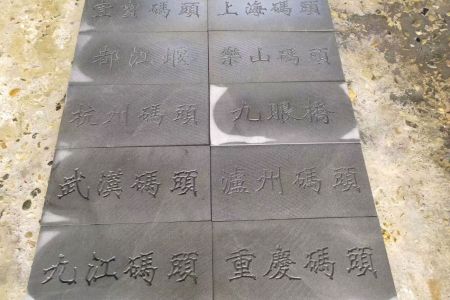 碼頭 上海碼頭
都江堰 樂山碼頭
杭州碼頭 九眼橋
武漢碼頭 瀘州碼頭
九江碼頭 重慶碼頭